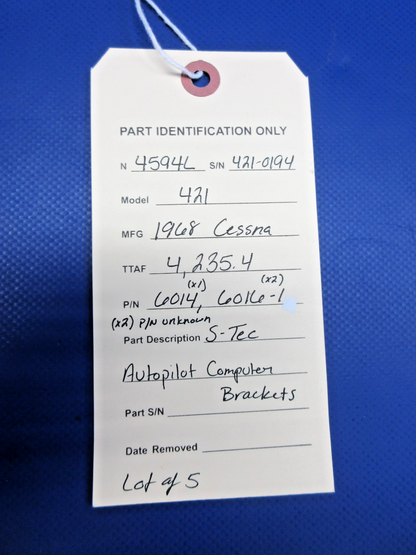 PART IDENTIFICATION ONLY
N 4594L S/N 421-0194
Model 421
MFG 1968 Cessna
TTAF 4,235.4
(x1) (x2)
P/N 6014, 6016-1
(x2) P/N unknown
Part Description S-Tec
Autopilot Computer
Brackets
Part S/N
Date Removed
Lot of 5